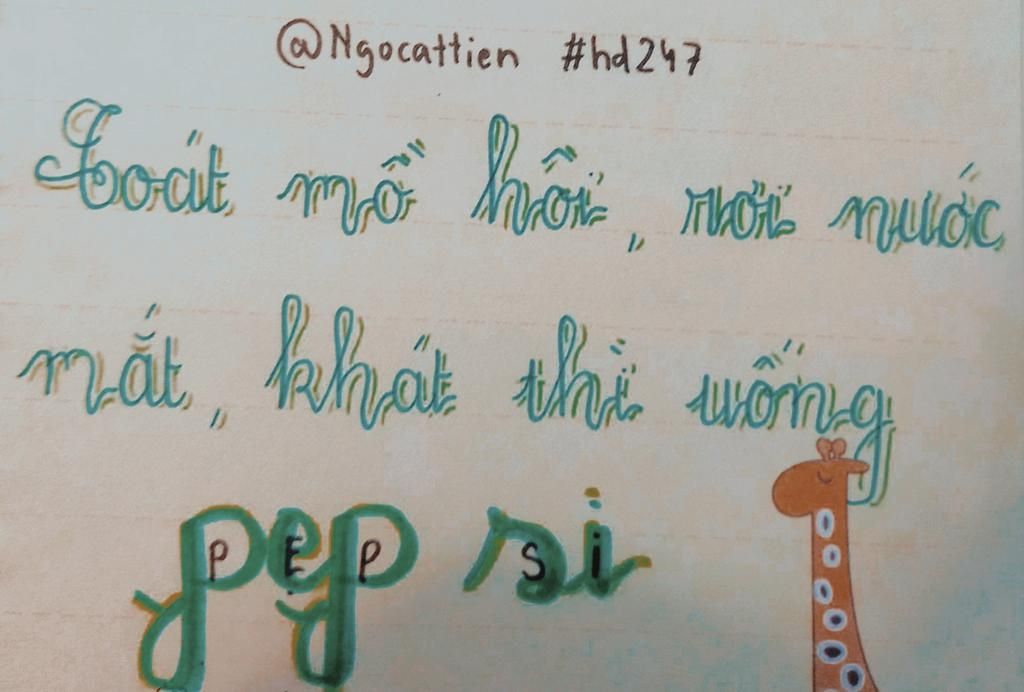 @Ngocattien #hd247
Toát mồ hôi, rơi nước
mắt, khát thì uống
pẹp si
PẸP Si